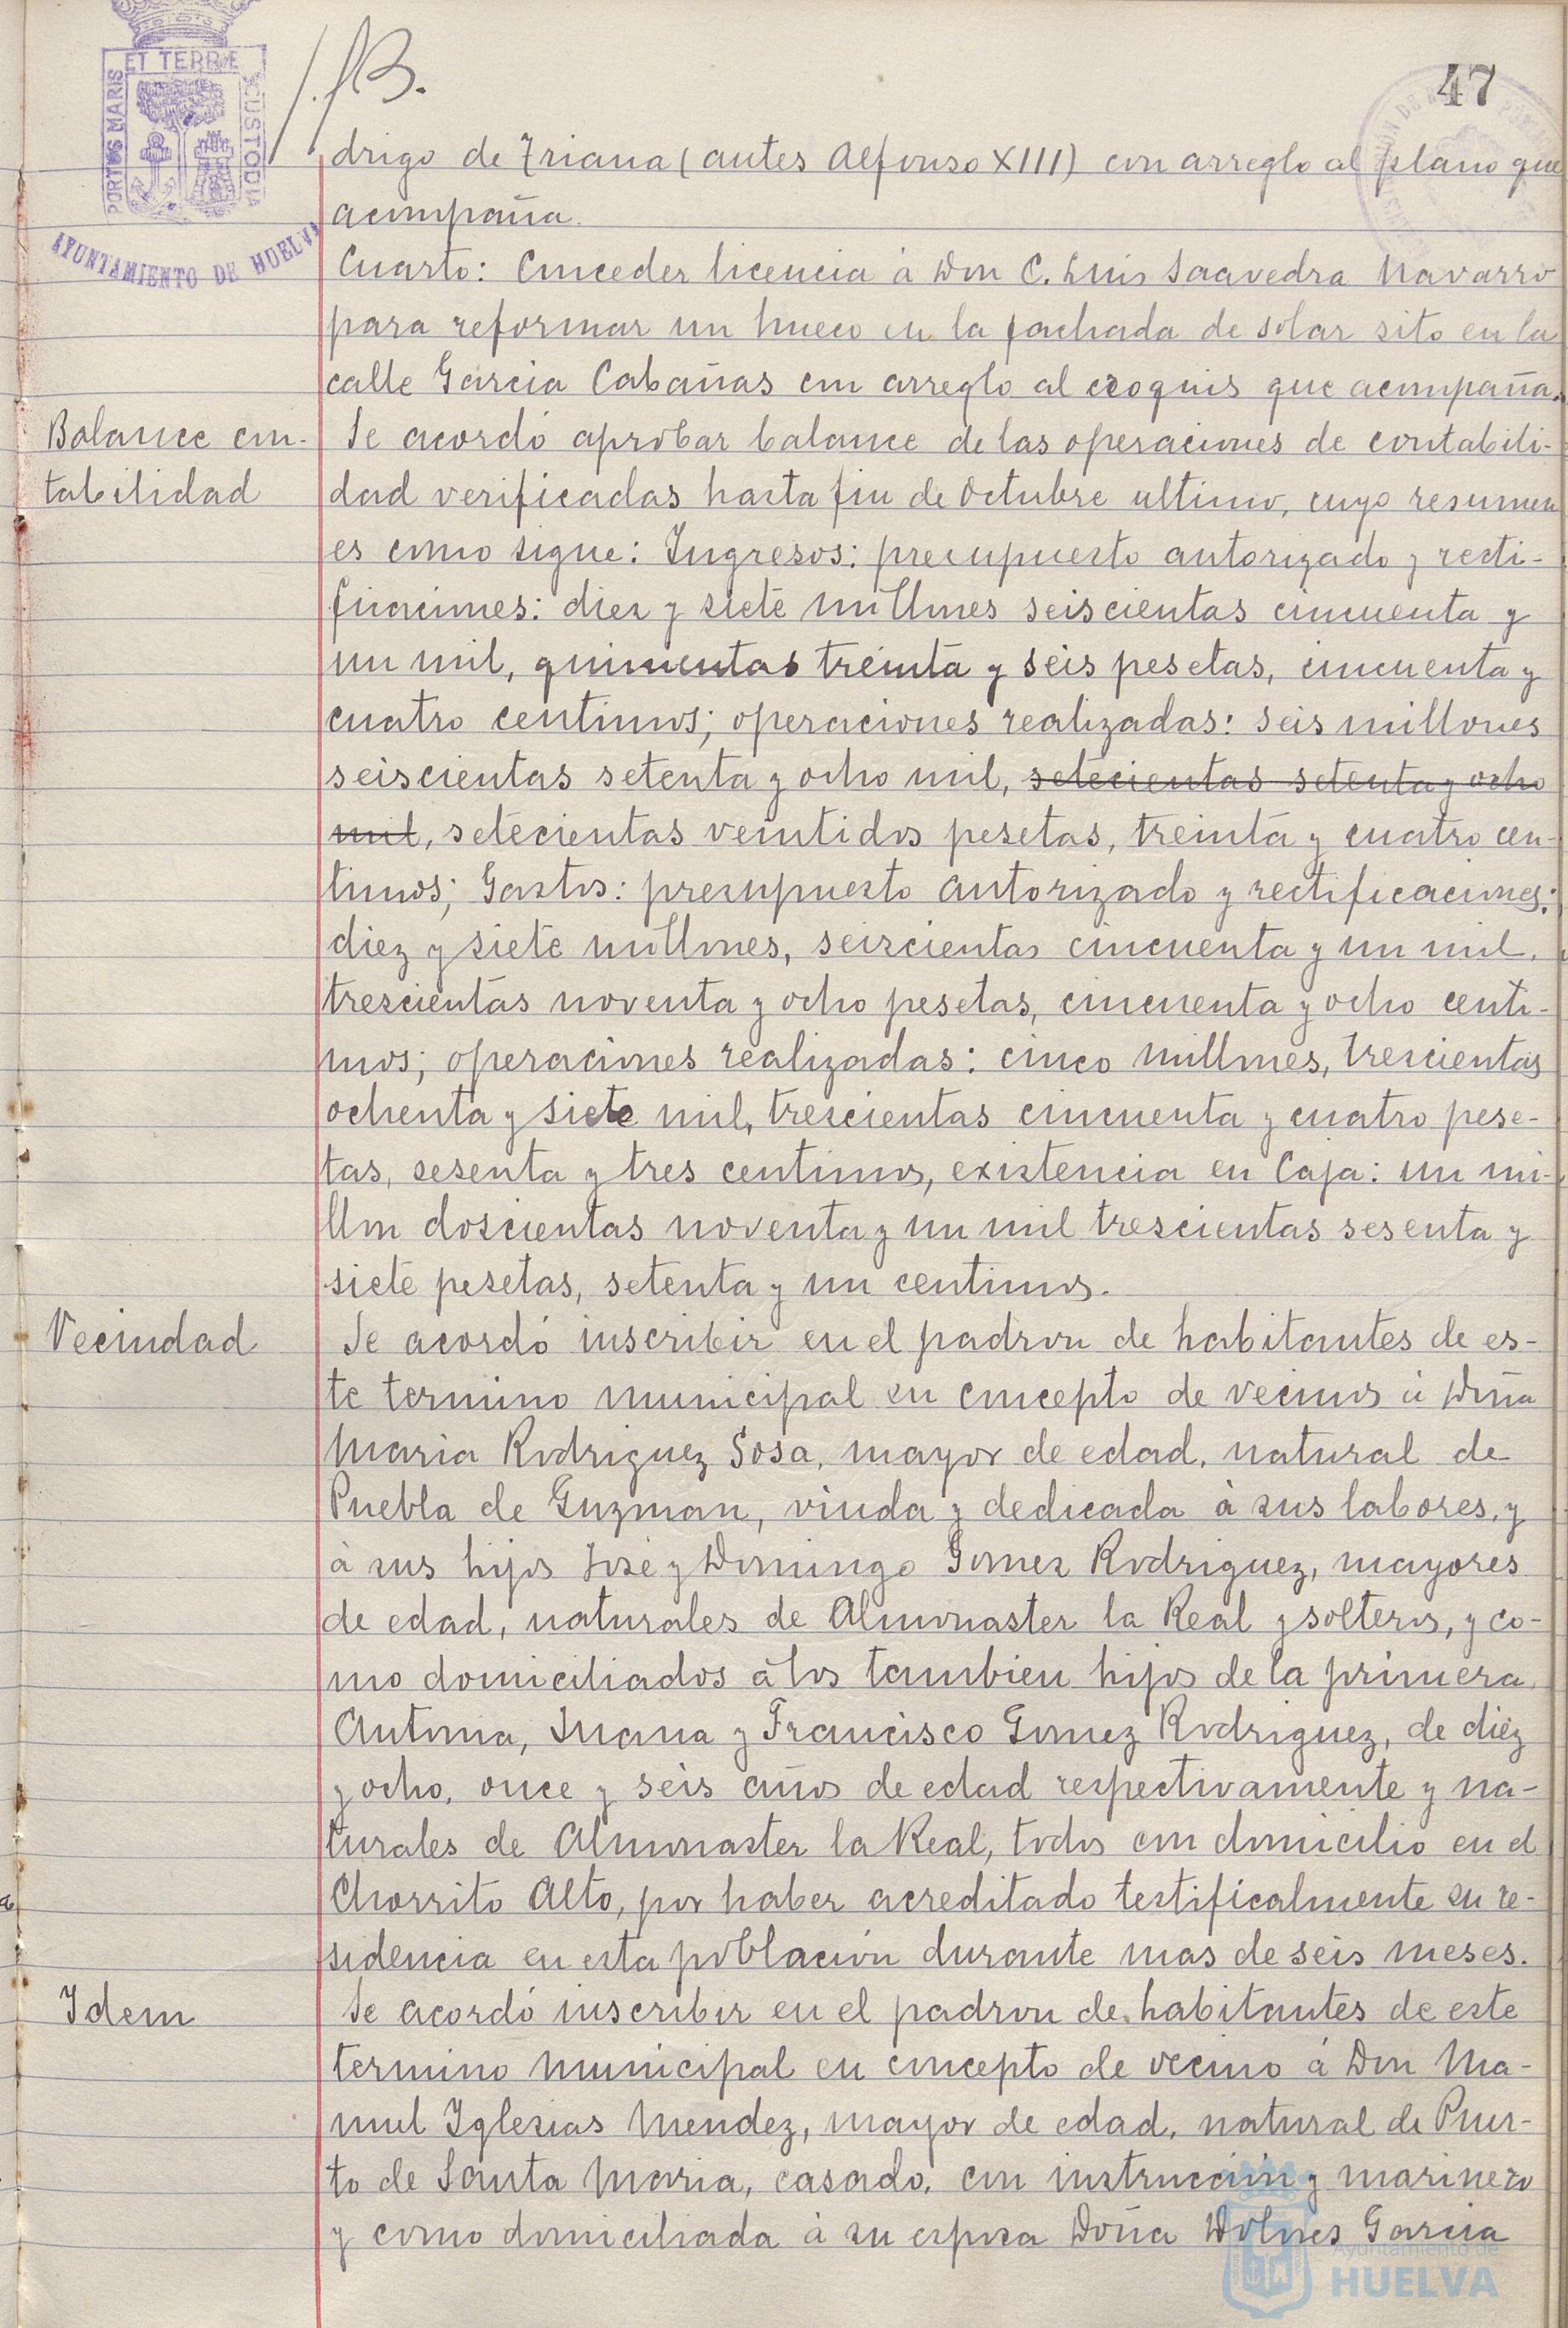 PORTUS MARIS ET TERRÆ CUSTODIA
AYUNTAMIENTO DE HUELVA
47
drigo de Triana (antes Alfonso XIII) con arreglo al plano que
acompaña.
Cuarto: Conceder licencia à Don C. Luis Saavedra Navarro
para reformar un hueco en la fachada de solar sito en la
calle Garcia Cabañas con arreglo al croquis que acompaña.
Balance con-
tabilidad
Se acordó aprobar balance de las operaciones de contabili-
dad verificadas hasta fin de Octubre ultimo, cuyo resumen
es como sigue: Ingresos: presupuesto autorizado y recti-
ficaciones: diez y siete millones seiscientas cincuenta y
un mil, quinientas treinta y seis pesetas, cincuenta y
cuatro centimos; operaciones realizadas: seis millones
seiscientas setenta y ocho mil, setecientas setenta y ocho
mil, setecientas veintidos pesetas, treinta y cuatro cen-
timos; Gastos: presupuesto autorizado y rectificaciones:
diez y siete millones, seiscientas cincuenta y un mil,
trescientas noventa y ocho pesetas, cincuenta y ocho centi-
mos; operaciones realizadas: cinco millones, trescientas
ochenta y siete mil, trescientas cincuenta y cuatro pese-
tas, sesenta y tres centimos, existencia en Caja: un mi-
llon doscientas noventa y un mil trescientas sesenta y
siete pesetas, setenta y un centimos.
Vecindad
Se acordó inscribir en el padron de habitantes de es-
te termino municipal en concepto de vecinos à Doña
Maria Rodriguez Sosa, mayor de edad, natural de
Puebla de Guzman, viuda y dedicada à sus labores, y
à sus hijos José y Domingo Gomez Rodriguez, mayores
de edad, naturales de Almonaster la Real y solteros, y co-
mo domiciliados à los tambien hijos de la primera
Antonia, Juana y Francisco Gomez Rodriguez, de diez
y ocho, once y seis años de edad respectivamente y na-
turales de Almonaster la Real, todos con domicilio en el
Chorrito Alto, por haber acreditado testificalmente su re-
sidencia en esta población durante mas de seis meses.
Idem
Se acordó inscribir en el padron de habitantes de este
termino municipal en concepto de vecino á Don Ma-
nuel Iglesias Mendez, mayor de edad, natural de Puer-
to de Santa Maria, casado, con instruccion y marinero
y como domiciliada à su esposa Doña Dolores Garcia
Ayuntamiento de
HUELVA